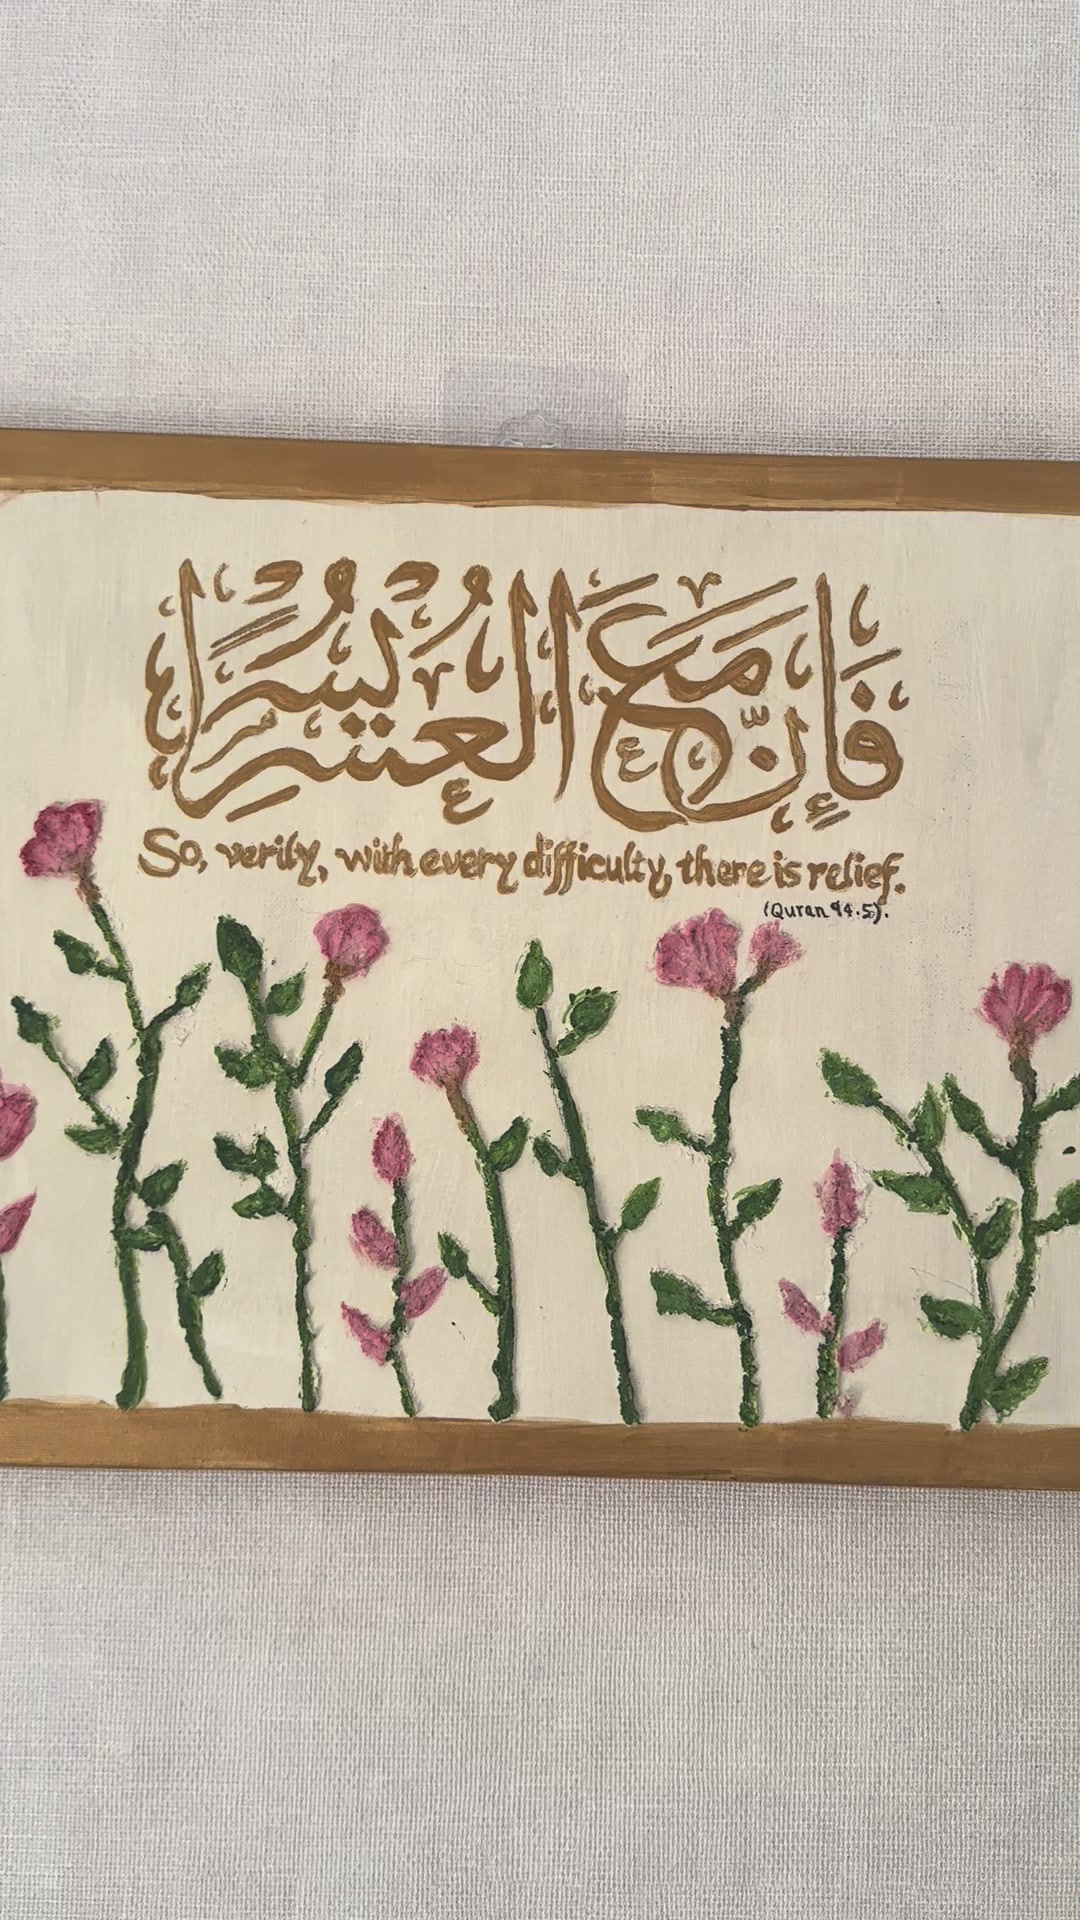 فَإِنَّ مَعَ الْعُسْرِ يُسْرًا
So, verily, with every difficulty, there is relief.
(Quran 94.5).